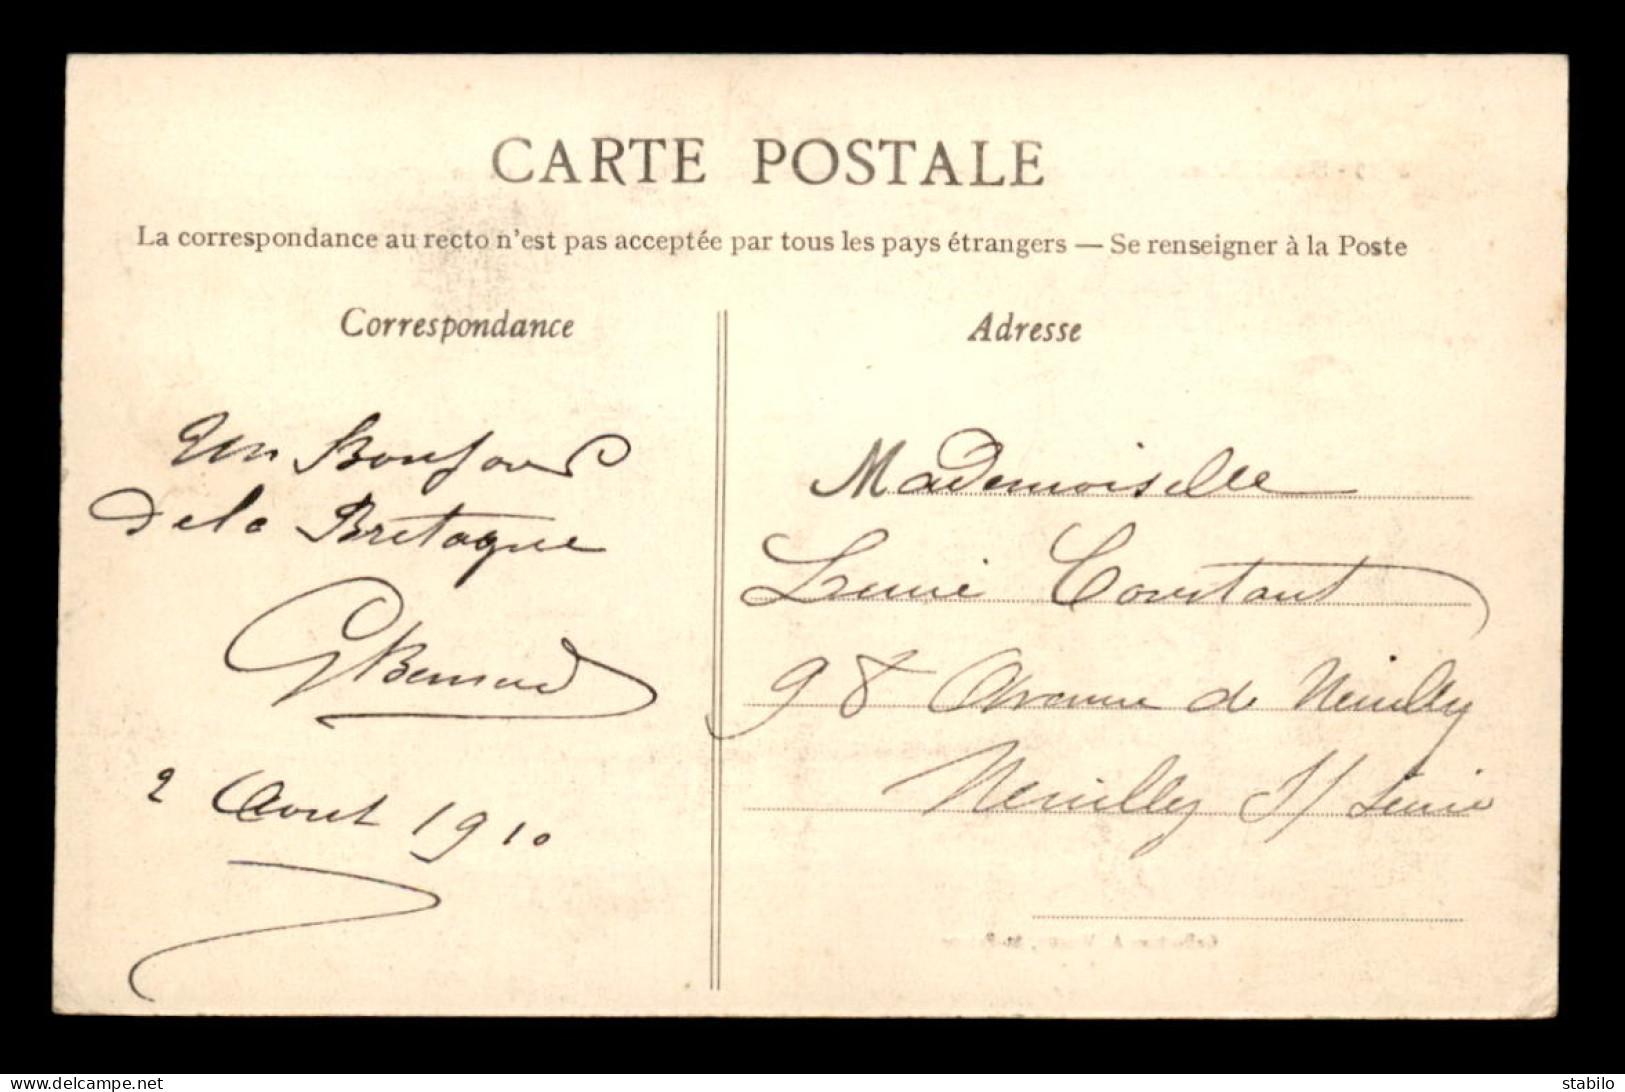 CARTE POSTALE
La correspondance au recto n'est pas acceptée par tous les pays étrangers — Se renseigner à la Poste
Correspondance
Un Bonjour
de la Bretagne
G Bernard
2 Aout 1910
Adresse
Mademoiselle
Constant
98 Avenue de Neuilly
Neuilly S/ Seine
www.delcampe.net
stabilo